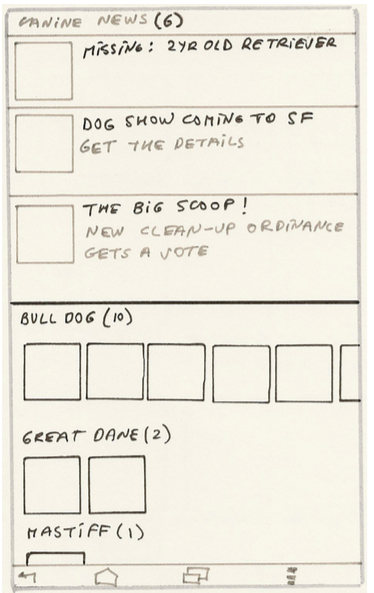 CANINE NEWS (6)
MISSING: 2YR OLD RETRIEVER
DOG SHOW COMING TO SF
GET THE DETAILS
THE BIG SCOOP!
NEW CLEAN-UP ORDINANCE
GETS A VOTE
BULL DOG (10)
GREAT DANE (2)
MASTIFF (1)